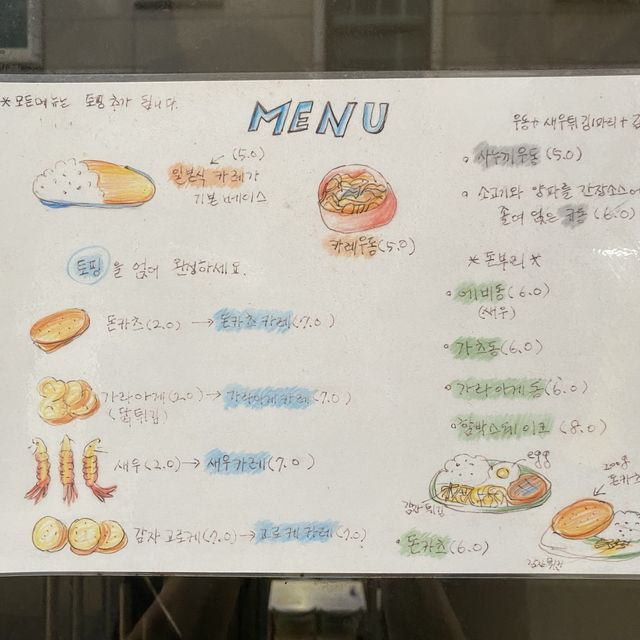 *모든메뉴는 토핑 추가 됩니다.
MENU
(5.0)
일본식 카레가
기본 베이스
카레우동(5.0)
토핑을 얹어 완성하세요.
돈카츠(2.0) → 돈카츠 카레(7.0)
가라아게(2.0) → 가라아게 카레(7.0)
(닭튀김)
새우(2.0) → 새우카레(7.0)
감자고로케(2.0) → 고로케 카레(7.0)
우동+새우튀김1마리+김
• 사누끼우동(5.0)
• 소고기와 양파를 간장소스에
졸여 얹은 규동(6.0)
*돈부리*
• 에비동(6.0)
(새우)
• 가츠동(6.0)
• 가라아게동(6.0)
• 함박스테이크(8.0)
egg
감자튀김
200g
돈카츠
• 돈카츠(6.0)